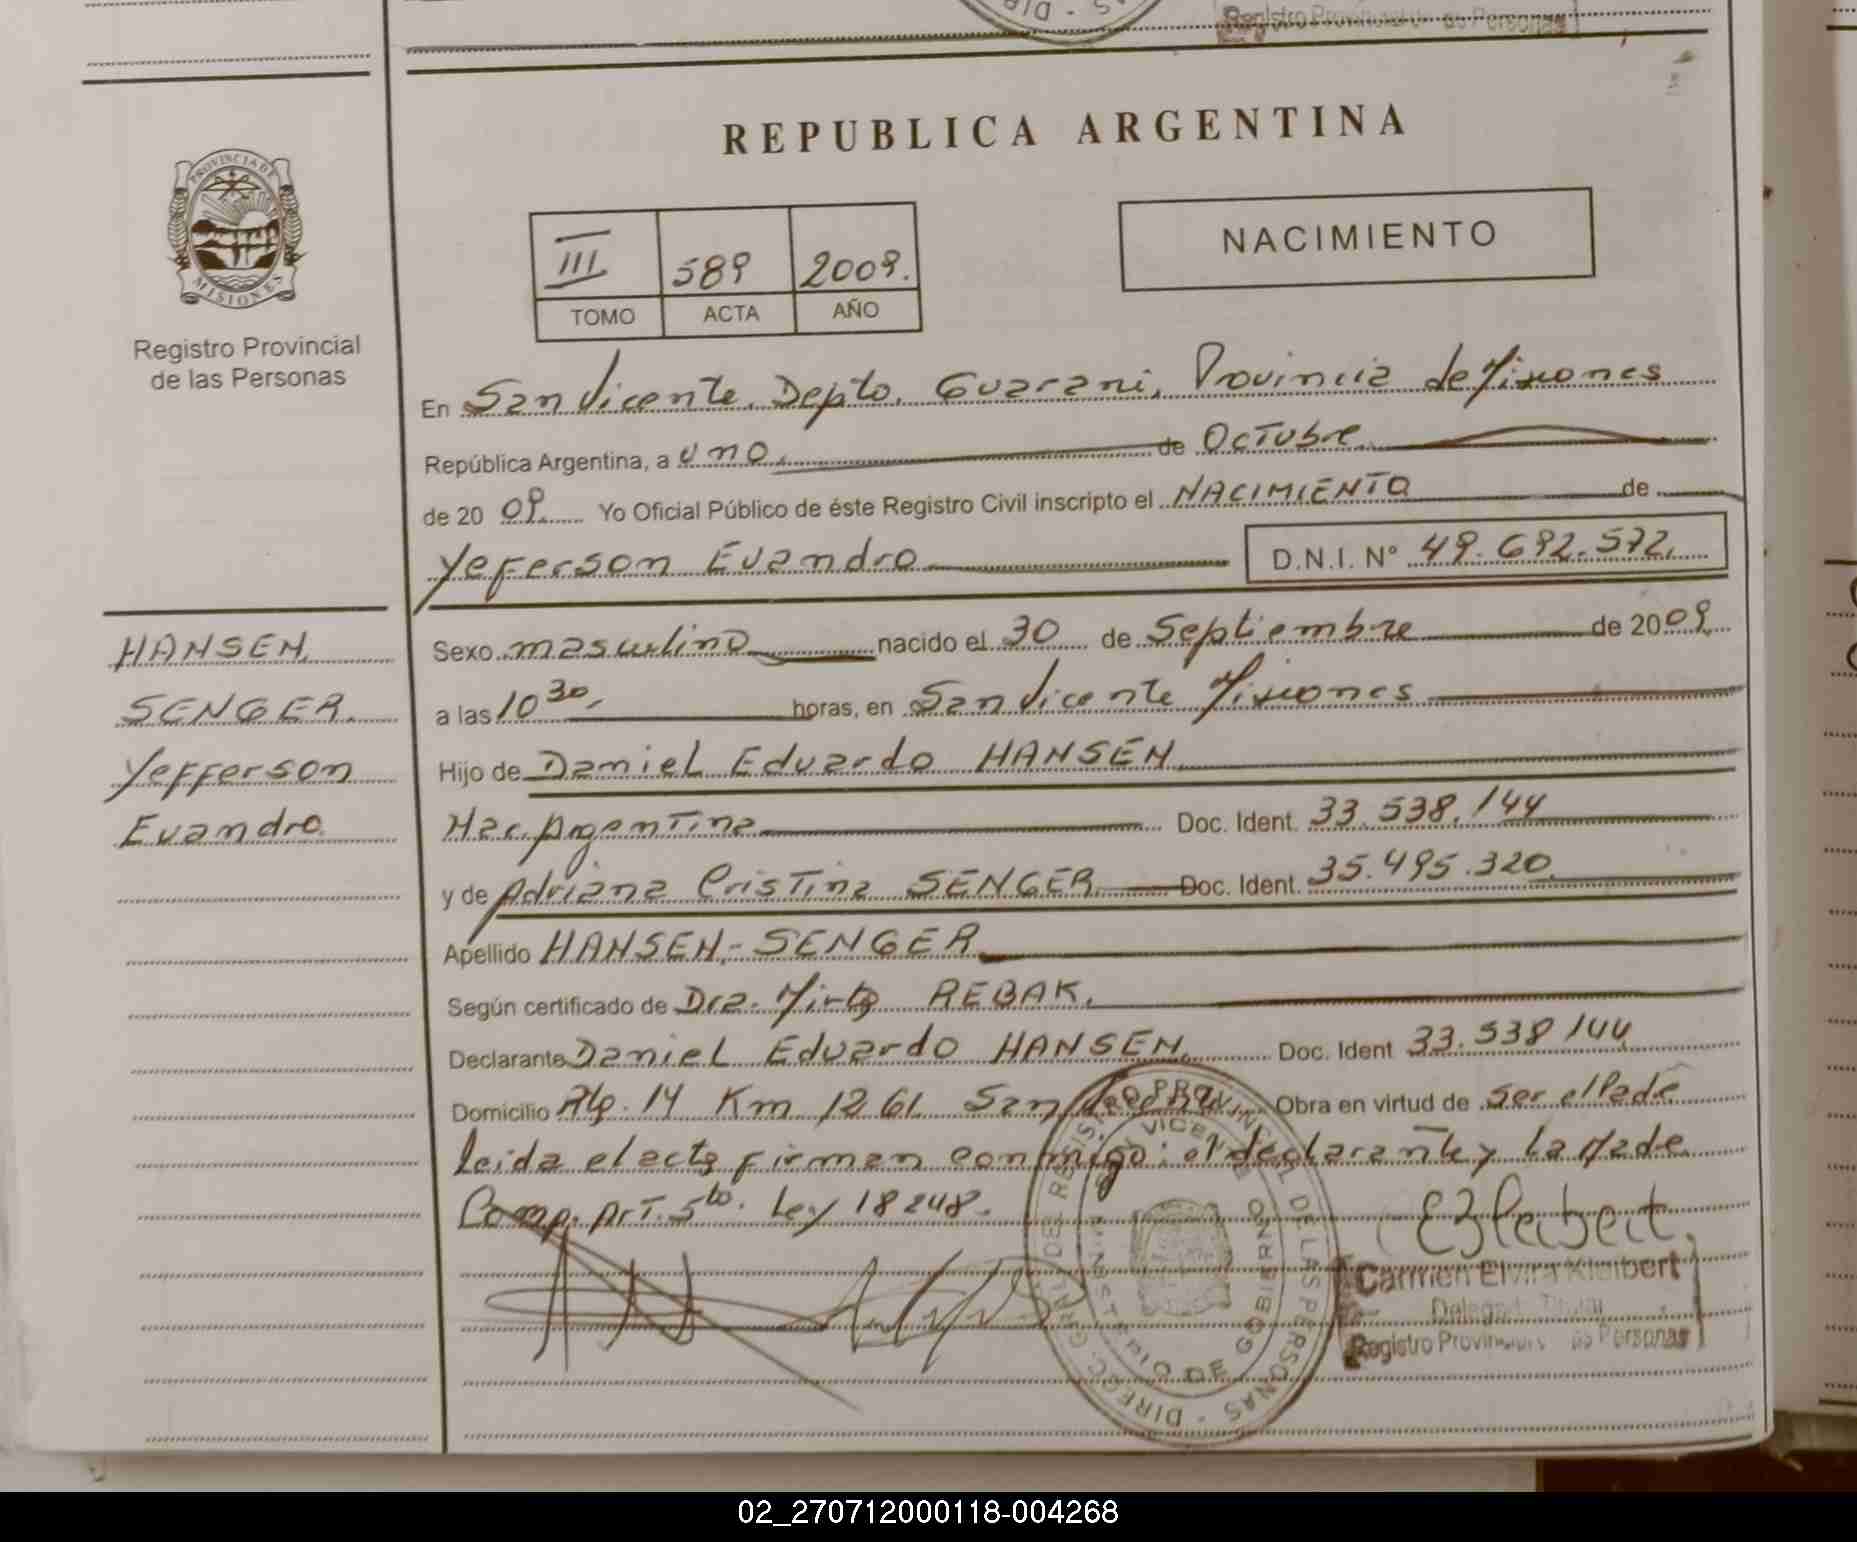 Registro Provincial de las Personas
REPUBLICA ARGENTINA
PROVINCIA DE MISIONES
Registro Provincial
de las Personas
III 589 2009.
TOMO ACTA AÑO
NACIMIENTO
En San Vicente, Depto. Guarani, Provincia de Misiones
República Argentina, a uno, de Octubre
de 2009. Yo Oficial Público de éste Registro Civil inscripto el NACIMIENTO de
Yeferson Evandro D.N.I. Nº 49.692.572.
HANSEN
SENGER.
Yefferson
Evandro
Sexo masculino nacido el 30 de Septiembre de 2009
a las 10 30, horas, en San Vicente Misiones
Hijo de Daniel Eduardo HANSEN
Nac. Argentina Doc. Ident. 33.538.144
y de Adriana Cristina SENGER Doc. Ident. 35.495.320.
Apellido HANSEN-SENGER
Según certificado de Dra. Mirta REBAK.
Declarante Daniel Eduardo HANSEN, Doc. Ident 33.538 144
Domicilio Rta. 14 Km 1261 San Obra en virtud de ser el Padre
leida el acta firman conmigo: el declarante y la Madre
Comp. Art. 5to. Ley 18248.
DIRECC. GRAL. DEL REGISTRO PROVINCIAL DE LAS PERSONAS
SAN VICENTE
MINISTERIO DE GOBIERNO
EKleibert
Carmen Elvira Kleibert
Delegada Titular
Registro Provincial de las Personas
02_270712000118-004268